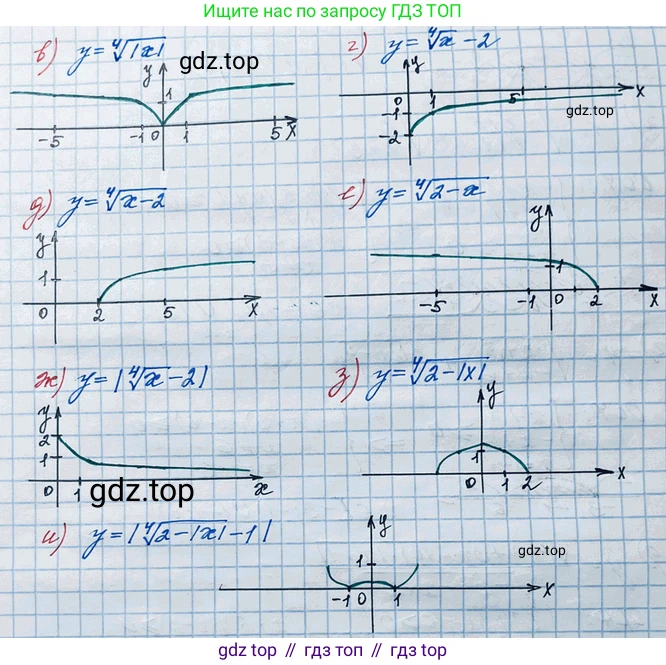 Ищите решения по запросу ГДЗ ТОП
в) y = ⁴√|x|
gdz.top
г) y = ⁴√x - 2
y
1
-5 -1 0 1 5 x
y
0 1 5 x
-1
-2
gdz.top
д) y = ⁴√x-2
е) y = ⁴√2-x
y
1
0 2 5 x
gdz.top
y
1
-5 -1 0 2 x
ж) y = |⁴√x - 2|
з) y = ⁴√2-|x|
y
2
1
0 1 x
gdz.top
y
1
0 1 2 x
и) y = |⁴√2-|x| - 1|
y
1
-1 0 1 x
gdz.top
gdz.top // гдз.топ // gdz.top // гдз.топ